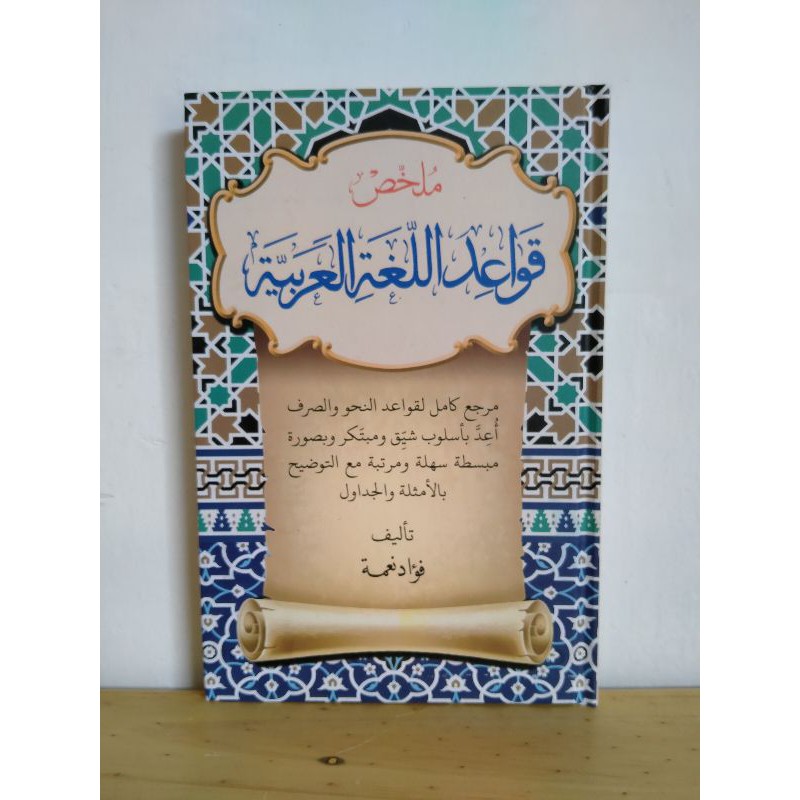 مُلخّص
قَوَاعِد اللّغَة العَرَبيّة
مرجع كامل لقواعد النحو والصرف
أُعِدَّ بأسلوب شيّق ومبتكر وبصورة
مبسطة سهلة ومرتبة مع التوضيح
بالأمثلة والجداول
تأليف
فؤاد نعمة